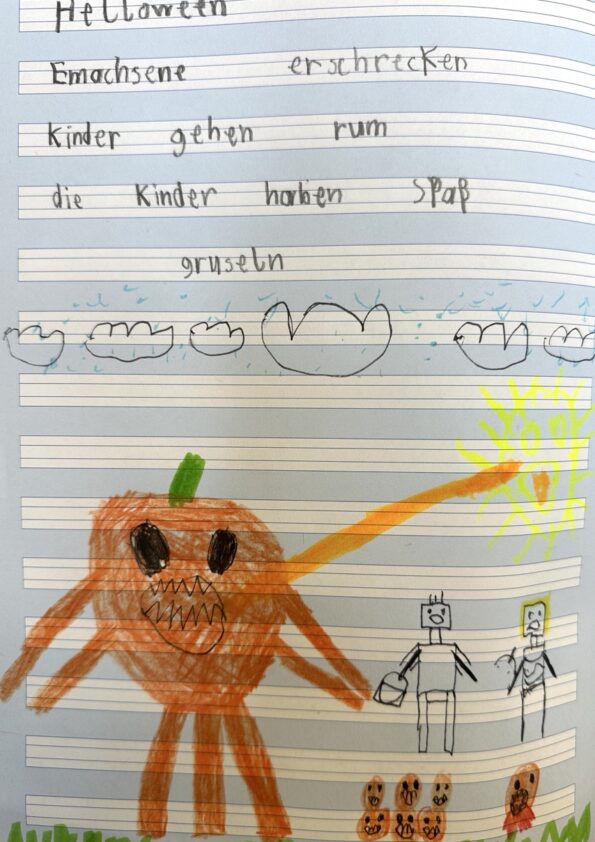 Helloween
Emachsene erschrecken
Kinder gehen rum
die Kinder haben Spaß
gruseln